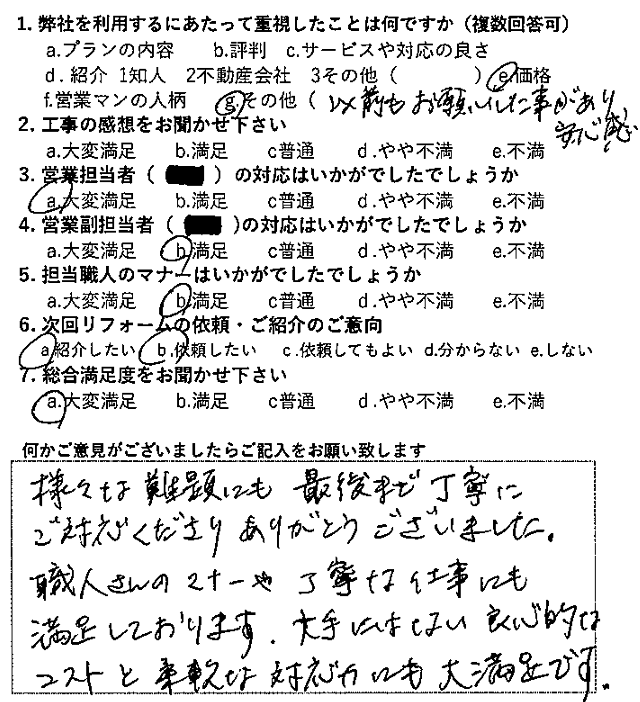 1. 弊社を利用するにあたって重視したことは何ですか（複数回答可）
a.プランの内容 b.評判 c.サービスや対応の良さ
d. 紹介 1知人 2不動産会社 3その他（ ） e.価格
f.営業マンの人柄 g.その他（ 以前もお願いした事があり
安心感
2. 工事の感想をお聞かせ下さい
a.大変満足 b.満足 c普通 d.やや不満 e.不満
3. 営業担当者（ ）の対応はいかがでしたでしょうか
a.大変満足 b.満足 c普通 d.やや不満 e.不満
4. 営業副担当者（ )の対応はいかがでしたでしょうか
a.大変満足 b.満足 c普通 d.やや不満 e.不満
5. 担当職人のマナーはいかがでしたでしょうか
a.大変満足 b.満足 c普通 d.やや不満 e.不満
6. 次回リフォームの依頼・ご紹介のご意向
a.紹介したい b.依頼したい c.依頼してもよい d.分からない e.しない
7. 総合満足度をお聞かせ下さい
a.大変満足 b.満足 c普通 d.やや不満 e.不満
何かご意見がございましたらご記入をお願い致します
様々な難題にも 最後まで丁寧に
ご対応くださり ありがとうございました。
職人さんのマナーや 丁寧な仕事にも
満足しております。大手にはない 良心的な
コストと 柔軟な 対応力にも 大満足です。